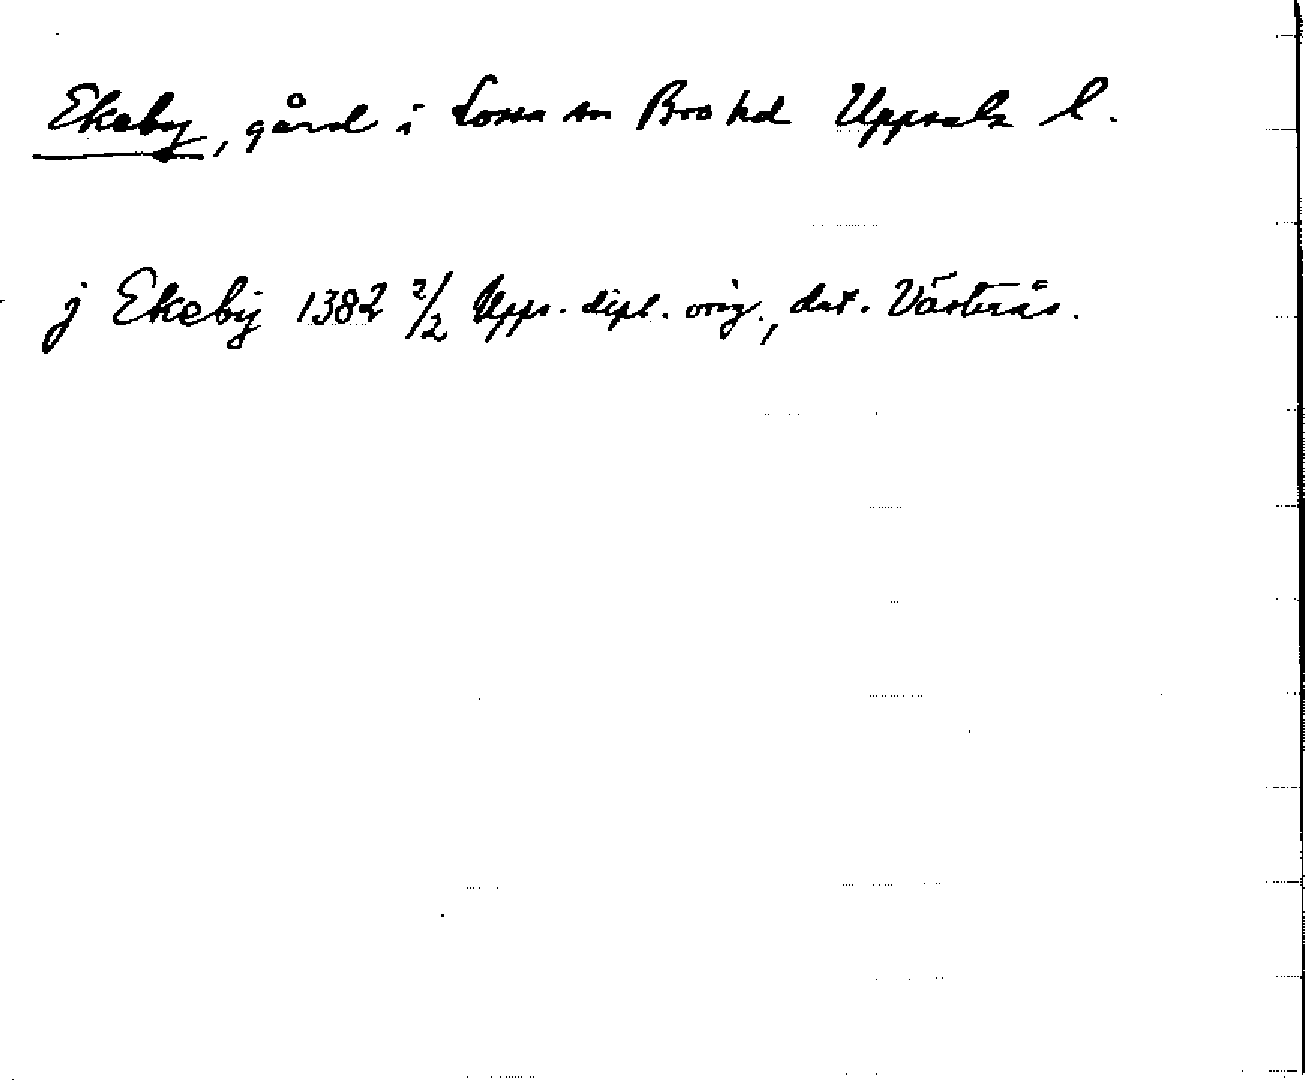 Ekeby, gård i Lossa sn Bro hd Uppsala l.
j Ekeby 1382 2/2 Upps. dipl. orig., dat. Västerås.